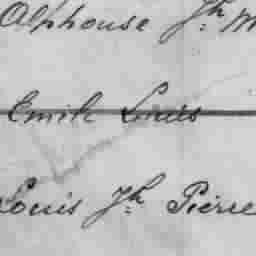 Alphonse Jh. M
Emile Louis
Louis Jh. Pierre